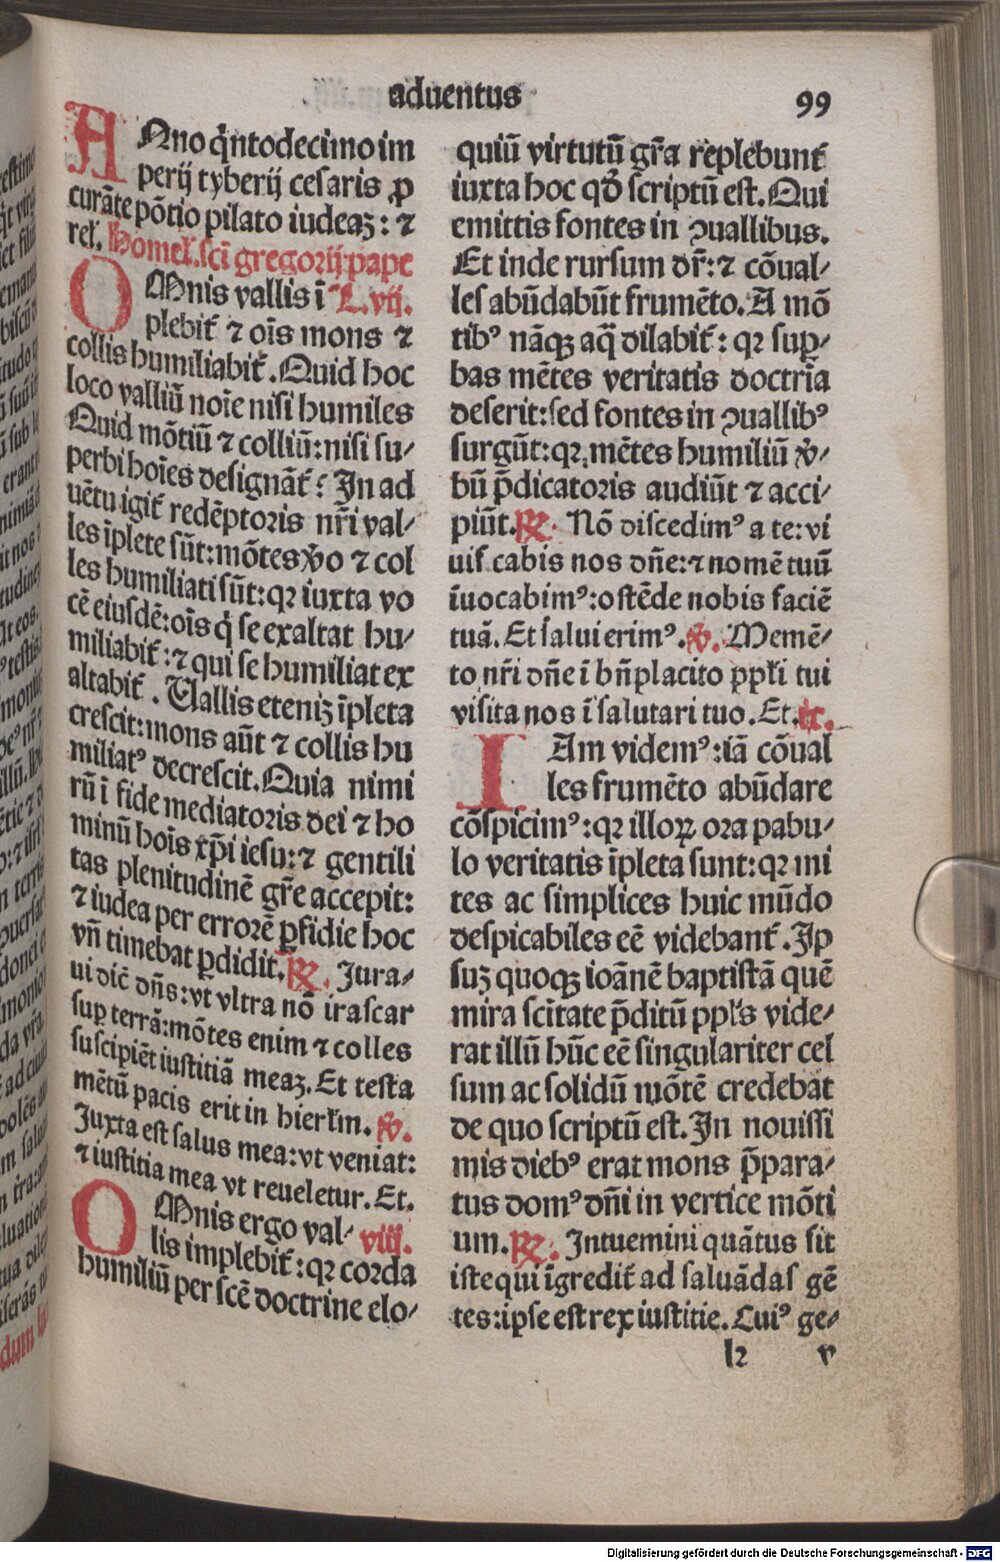 aduentus
99
ANno q̇ntodecimo im
perij tyberij cesaris ꝓ
curāte pōtio pilato iudeaꝫ: ⁊
rel̃. Homel̃. sc̄i gregorij pape
OMnis vallis ī L. vij.
plebit̄ ⁊ oı̄s mons ⁊
collis humiliabit̄. Quid hoc
loco valliū noı̄e nisi humiles
Quid mōtiū ⁊ colliū: nisi su⸗
perbi hoı̄es designāt̄? In ad
uētu igit̄ redēptoris nr̄i val⸗
les īplete sūt: mōtes v̊o ⁊ col
les humiliati sūt: qꝛ iuxta vo
cē eiusdē: oı̄s q̇ se exaltat hu⸗
miliabit̄: ⁊ qui se humiliat ex
altabit̄. Uallis eteniꝫ īpleta
crescit: mons aūt ⁊ collis hu
miliatꝰ decrescit. Quia nimi
rū ī fide mediatoris dei ⁊ ho
minū hoı̄s xp̄i iesu: ⁊ gentili
tas plenitudinē gr̄e accepit:
⁊ iudea per errorē ꝑfidie hoc
vn̄ timebat ꝑdidit. ℟. Jura⸗
ui dic̄ dn̄s: vt vltra nō irascar
suꝑ terrā: mōtes enim ⁊ colles
suscipiēt iustitiā meaꝫ. Et testa
mētū pacis erit in hierl̄m. ℣.
Juxta est salus mea: vt veniat:
⁊ iustitia mea vt reueletur. Et.
OMnis ergo val⸗ viij.
lis implebit̄: qꝛ corda
humiliū per scē doctrine elo⸗
quiū virtutū gr̄a replebunt̄
iuxta hoc qd̄ scriptū est. Qui
emittis fontes in ꝯuallibus.
Et inde rursum dr̄: ⁊ cōual⸗
les abūdabūt frumēto. A mō
tibꝰ nāqꝫ aq̄ dilabit̄: qꝛ suꝑ⸗
bas mētes veritatis doctrīa
deserit: sed fontes in ꝯuallibꝰ
surgūt: qꝛ mētes humiliū v̊⸗
bū p̄dicatoris audiūt ⁊ acci⸗
piūt. ℟. Nō discedimꝰ a te: vi
uif cabis nos dn̄e: ⁊ nomē tuū
īuocabimꝰ: ostēde nobis faciē
tuā. Et salui erimꝰ. ℣. Memē⸗
to nr̄i dn̄e ī bn̄placito ppl̄i tui
visita nos ī salutari tuo. Et. ⁊c.
IAm videmꝰ: iā cōual
les frumēto abūdare
cōspicimꝰ: qꝛ illoꝝ ora pabu⸗
lo veritatis īpleta sunt: qꝛ mi
tes ac simplices huic mūdo
despicabiles eē videbant̄. Ip
suꝫ quoqꝫ ioānē baptistā quē
mira sc̄itate p̄ditū ppl̄s vide⸗
rat illū hūc eē singulariter cel
sum ac solidū mōtē credebat
de quo scriptū est. In nouissi
mis diebꝰ erat mons p̄para⸗
tus domꝰ dn̄i in vertice mōti
um. ℟. Intuemini quātus sit
iste qui īgredit̄ ad saluādas gē
tes: ipse est rex iustitie. Cuiꝰ ge⸗
v